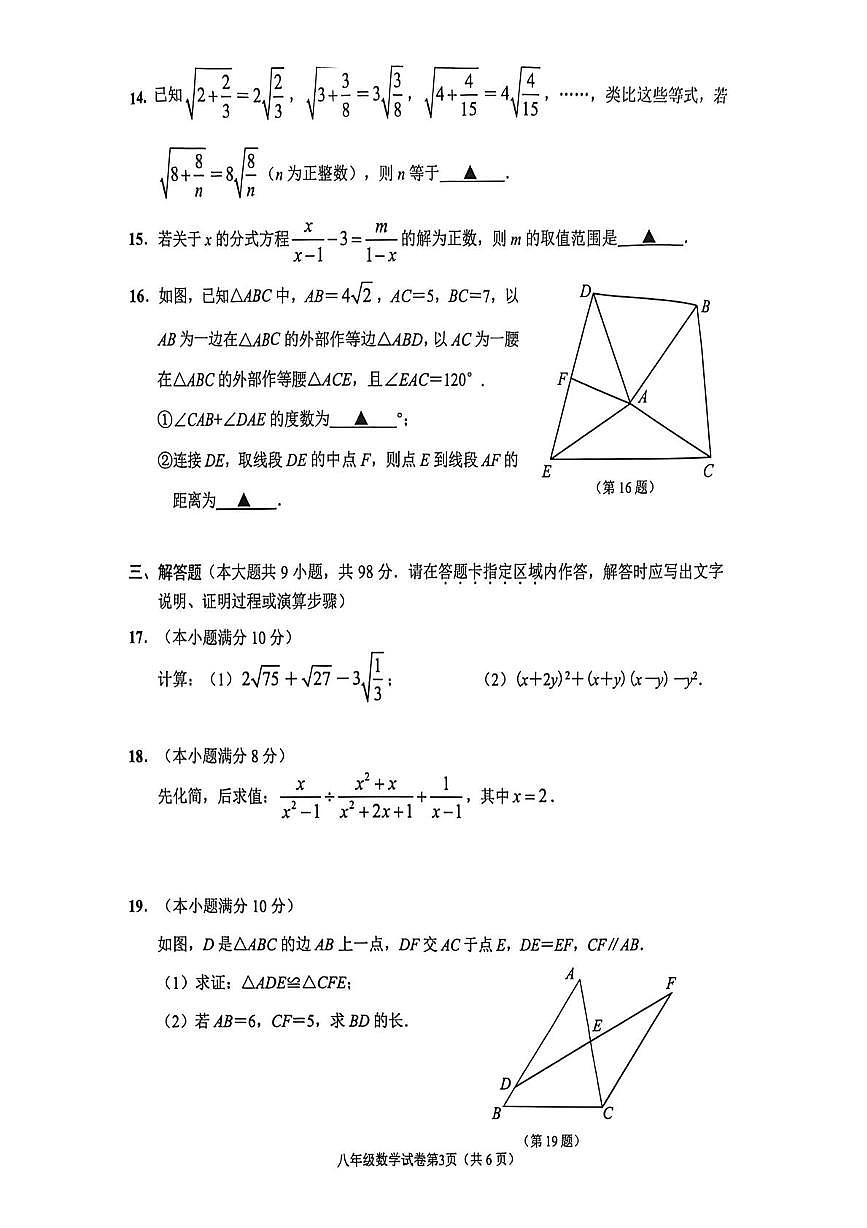 14. 已知√(2+2/3)=2√(2/3), √(3+3/8)=3√(3/8), √(4+4/15)=4√(4/15), ……, 类比这些等式, 若
√(8+8/n)=8√(8/n) (n 为正整数), 则 n 等于 ▲ .
15. 若关于 x 的分式方程 x/(x-1) -3= m/(1-x) 的解为正数, 则 m 的取值范围是 ▲ .
16. 如图, 已知△ABC 中, AB=4√2, AC=5, BC=7, 以
AB 为一边在△ABC 的外部作等边△ABD, 以 AC 为一腰
在△ABC 的外部作等腰△ACE, 且∠EAC=120°.
①∠CAB+∠DAE 的度数为 ▲ °;
②连接 DE, 取线段 DE 的中点 F, 则点 E 到线段 AF 的
距离为 ▲ .
D
B
F
A
E
C
(第 16 题)
三、解答题(本大题共 9 小题, 共 98 分. 请在答题卡指定区域内作答, 解答时应写出文字
说明、证明过程或演算步骤)
17. (本小题满分 10 分)
计算: (1) 2√75+√27-3√(1/3); (2) (x+2y)²+(x+y)(x-y)-y².
18. (本小题满分 8 分)
先化简, 后求值: x/(x²-1) ÷ (x²+x)/(x²+2x+1) + 1/(x-1), 其中 x=2.
19. (本小题满分 10 分)
如图, D 是△ABC 的边 AB 上一点, DF 交 AC 于点 E, DE=EF, CF∥AB.
(1) 求证: △ADE≌△CFE;
(2) 若 AB=6, CF=5, 求 BD 的长.
A
F
E
D
B
C
(第 19 题)
八年级数学试卷第3页 (共 6 页)